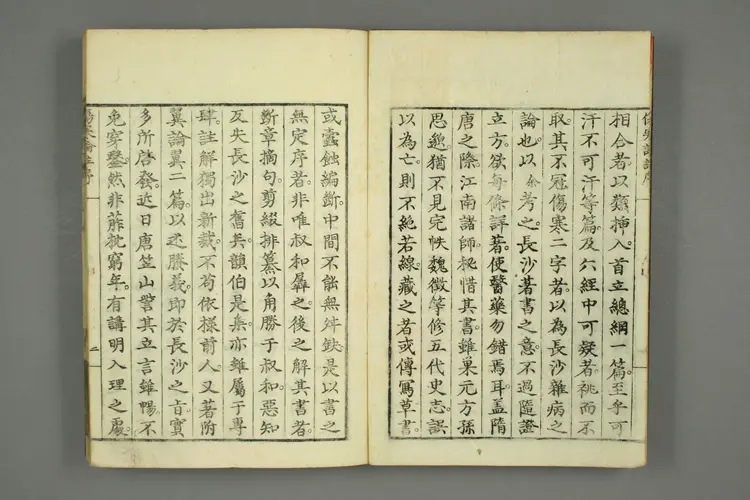 相合者。以類揷入。首立總綱一篇。至乎可
汗不可汗等篇。及六經中可疑者。祧而不
取。其不冠傷寒二字者。以為長沙雜病之
論也。以余考之。長沙著書之意。不過隨證
立方。欲每條詳著。使醫藥勿錯焉耳。盖隋
唐之際。江南諸師。秘惜其書。雖巢元方孫
思邈。猶不見完帙。魏徵等修五代史志。誤
以為亡。則不絶若線。藏之者或傳寫草書。
或蠹蝕編斷。中間不能無舛缺。是以書之
無定序者。非唯叔和舜之。後之解其書者。
斷章摘句。剪綴排纂。以角勝于叔和。惡知
反失長沙之舊矣。韻伯是集。亦雖屬于專
肆。註解獨出新裁。不苟依樣前人。又著附
翼論翼二篇。以丞勝義。即於長沙之旨。實
多所啓發。近日唐笠山訾其立言雖暢。不
免穿鑿。然非蓙批窮年。有講明入理之處。
傷寒論 序
二